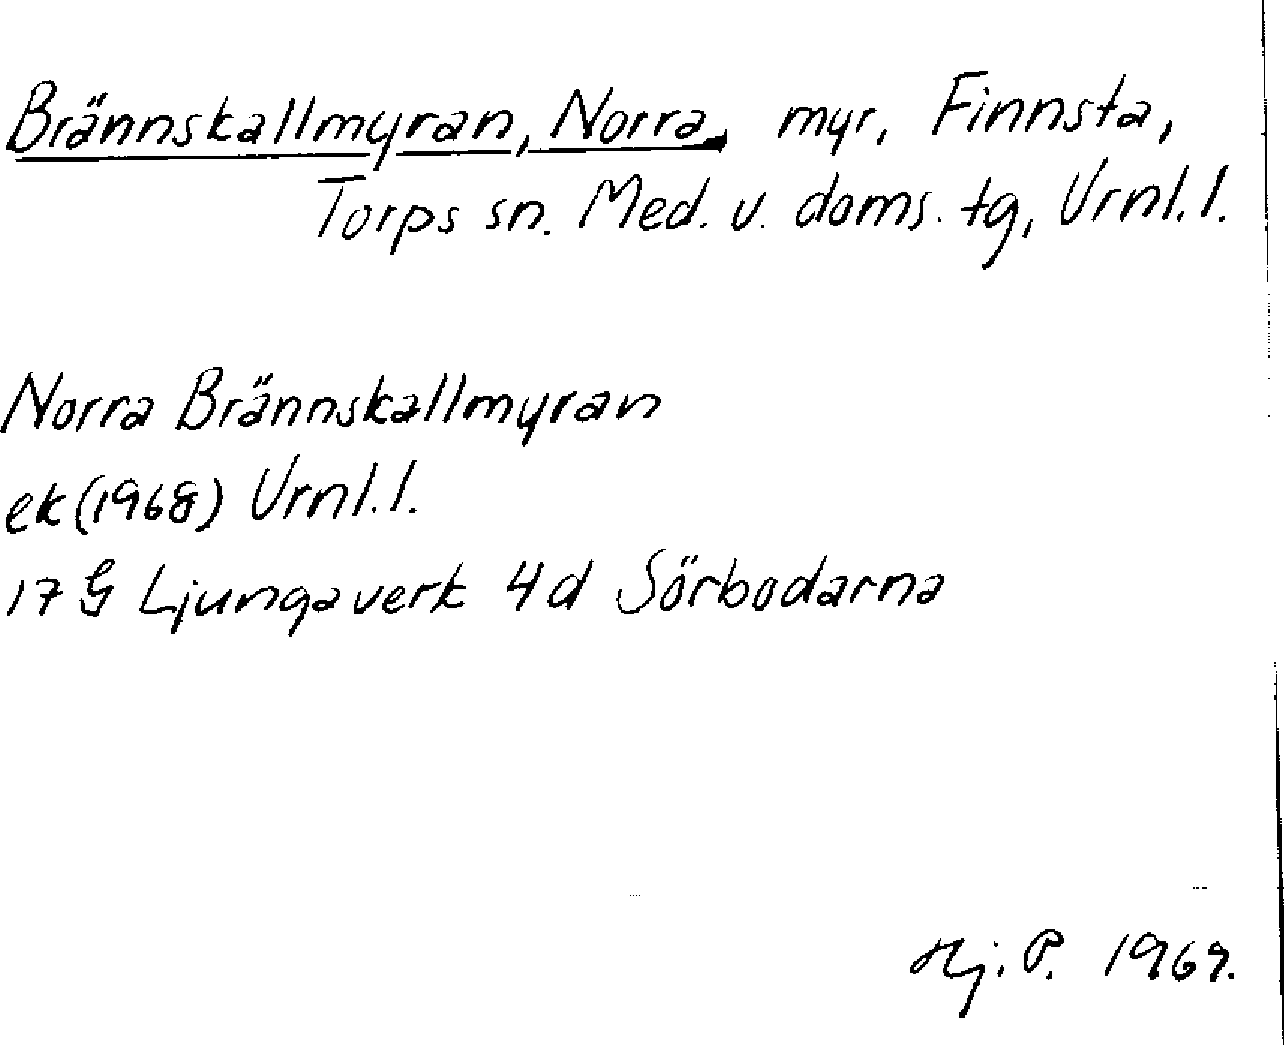 Brännskallmyran, Norra, myr, Finnsta,
Torps sn. Med. v. doms. tg, Vrnl. l.
Norra Brännskallmyran
ek (1968) Vrnl. l.
17 G Ljungaverk 4d Sörbodarna
Hj. P. 1969.